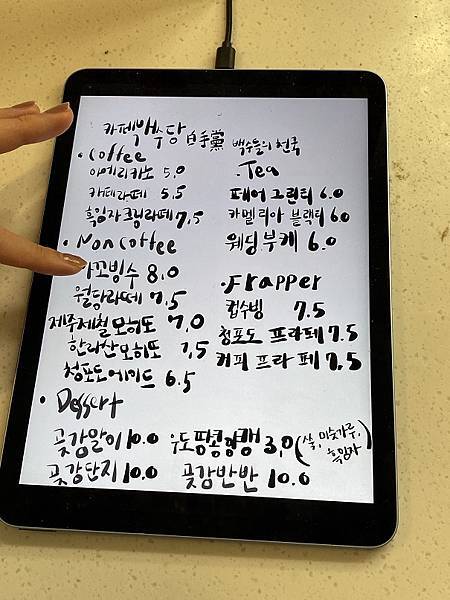 카페백수당 白手黨 백수들의 천국
· Coffee
아메리카노 5.0
카페라떼 5.5
흑임자크림라떼 7.5
· Non Coffee
빙수 8.0
월당라떼 7.5
제주제철모히또 7.0
한라산모히또 7.5
청포도에이드 6.5
· Tea
페어그린티 6.0
카멜리아 블랙티 6.0
웨딩부케 6.0
· Frapper
컵수빙 7.5
청포도 프라페 7.5
커피 프라페 7.5
· Dessert
곶감말이 10.0 우도땅콩항빵 3.0 (쑥, 미숫가루, 흑임자)
곶감단지 10.0 곶감반반 10.0